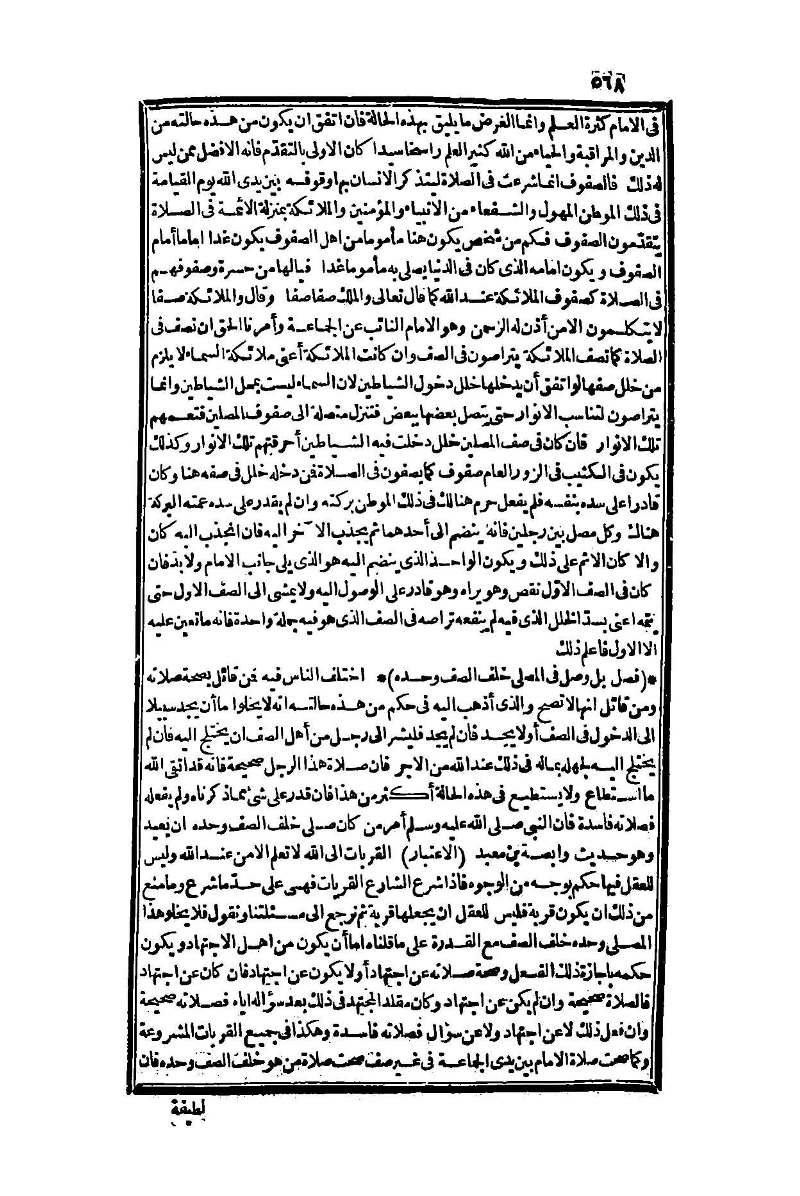 ٥٦٨
فى الامام كثرة العلم وانما الغرض ما يليق بهذه الحالة فان اتفق ان يكون من هذه حالته من
الدين والمراقبة والحياء من الله كثير العلم راسخا سيدا كان الاولى بالتقدم فانه الافضل ممن ليس
له ذلك فالصفوف انما شرعت فى الصلاة ليتذكر الانسان بها وقوفه بين يدى الله يوم القيامة
فى ذلك الموطن المهول والشفعاء من الانبياء والمؤمنين والملائكة بمنزلة الائمة فى الصلاة
يتقدمون الصفوف فكم من شخص يكون هنا مأموما من اهل الصفوف يكون غدا اماما أمام
الصفوف ويكون امامه الذى كان فى الدنيا يصلى به مأموما غدا فيالها من حسرة وصفوفهم
فى الصلاة كصفوف الملائكة عند الله كما قال تعالى والملك صفا صفا وقال والملائكة صفا
لا يتكلمون الا من أذن له الرحمن وهو الامام النائب عن الجماعة وأمرنا الحق ان نصف فى
الصلاة كما تصف الملائكة يتراصون فى الصف وان كانت الملائكة أعنى ملائكة السماء لا يلزم
من خلل صفها لو اتفق أن يدخلها خلل دخول الشياطين لان السماء ليست بمحل الشياطين وانما
يتراصون لتناسب الانوار حتى يتصل بعضها ببعض فتنزل متصلة الى صفوف المصلين فتعمهم
تلك الانوار فان كان فى صف المصلين خلل دخلت فيه الشياطين أحرقتهم تلك الانوار وكذلك
يكون فى الكثيب فى الزور العام صفوف كما يصفون فى الصلاة فمن دخله خلل فى صفه هنا وكان
قادرا على سده بنفسه فلم يفعل حرم هنالك فى ذلك الموطن بركته وان لم يقدر على سده عمته البركة
هنالك وكل مصل بين رجلين فانه ينضم الى أحدهما ثم يجذب الآخر اليه فان انجذب اليه كان
والا كان الاثم على ذلك ويكون الواحد الذى ينضم اليه هو الذى يلى جانب الامام ولا بد فان
كان فى الصف الاول نقص وهو يراه وهو قادر على الوصول اليه ولا يمشى الى الصف الاول حتى
يتمه اعنى بسد الخلل الذى فيه لم ينفعه تراصه فى الصف الذى هو فيه جملة واحدة فانه ما تعين عليه
الا الاول فاعلم ذلك
*(فصل بل وصل فى المصلى خلف الصف وحده)* اختلف الناس فيه فمن قائل بصحة صلاته
ومن قائل انها لا تصح والذى أذهب اليه فى حكم من هذه حالته انه لا يخلوا ما أن يجد سبيلا
الى الدخول فى الصف أولا يجد فان لم يجد فليشر الى رجل من أهل الصف ان يختلج اليه فان لم
يختلج اليه لجهله بماله فى ذلك عند الله من الاجر فان صلاة هذا الرجل صحيحة فانه قد اتقى الله
ما استطاع ولا يستطيع فى هذه الحالة أكثر من هذا فان قدر على شئ مما ذكرناه ولم يفعله
فصلاته فاسدة فان النبى صلى الله عليه وسلم أمر من كان صلى خلف الصف وحده ان يعيد
وهو حديث وابصة بن معبد (الاعتبار) القربات الى الله لا تعلم الا من عند الله وليس
للعقل فيها حكم بوجه من الوجوه فاذا شرع الشارع القربات فهى على حد ما شرع وما منع
من ذلك ان يكون قربة فليس للعقل ان يجعلها قربة ثم نرجع الى مسئلتنا ونقول فلا يخلو هذا
المصلى وحده خلف الصف مع القدرة على ما قلناه اما أن يكون من اهل الاجتهاد ويكون
حكمه باجازة ذلك الفعل وصحة صلاته عن اجتهاد أولا يكون عن اجتهاد فان كان عن اجتهاد
فالصلاة صحيحة وان لم يكن عن اجتهاد وكان مقلد المجتهد فى ذلك بعد سؤاله اياه فصلاته صحيحة
وان فعل ذلك لا عن اجتهاد ولا عن سؤال فصلاته فاسدة وهكذا فى جميع القربات المشروعة
وكما صحت صلاة الامام بين يدى الجماعة فى غير صف صحت صلاة من هو خلف الصف وحده فان
لطيفة